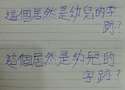 這個居然是幼兒的字
跡?
這個居然是幼兒的
字跡?